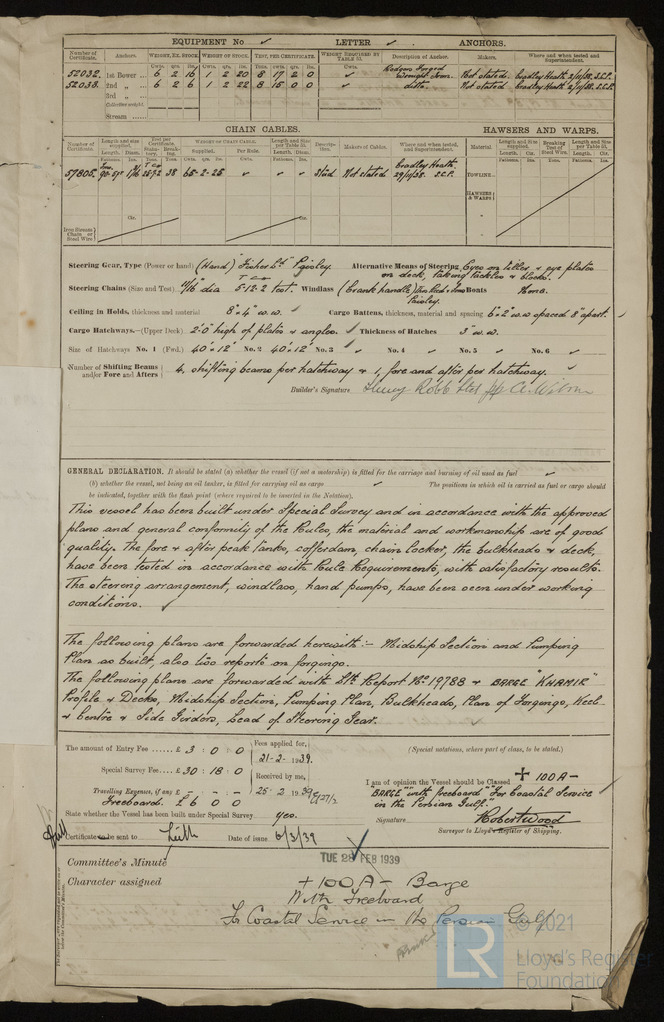 EQUIPMENT No ✓ LETTER ✓ ANCHORS.
Number of Certificate. Anchors. WEIGHT, EX. STOCK WEIGHT OF STOCK. TEST, PER CERTIFICATE. WEIGHT REQUIRED BY TABLE 53. Description of Anchor. Makers. Where and when tested and Superintendent.
Cwts. qrs. lbs. Cwts. qrs. lbs. Tons. cwts. qrs. lbs. Cwts.
52032. 1st Bower 6 2 16 1 2 20 8 17 2 0 ✓ Wrought Iron. Not stated. Cradley Heath 2/11/38. S.C.P.
52038. 2nd „ 6 2 6 1 2 22 8 15 0 0 ✓ ditto. Not stated. Cradley Heath 2/11/38. S.C.P.
3rd „
Collective weight.
Stream
CHAIN CABLES. HAWSERS AND WARPS.
Number of Certificate. Length and size supplied. Test per Certificate. WEIGHT OF CHAIN CABLE. Length and Size per Table 53. Description. Makers of Cables. Where and when tested, and Superintendent. Material. Length and Size supplied. Breaking Test of Steel Wire. Length and Size per Table 53.
Fathoms. Diam. Tons. Tons. Supplied. Per Rule. Length. Diam.
57805. 38 65-2-25 ✓ ✓ ✓ Stud Not stated Cradley Heath. 29/11/38. S.C.P. TOWLINE
HAWSERS & WARPS
Iron Stream Chain or Steel Wire
Steering Gear, Type (Power or hand) (Hand) "Fisher Ld" Paisley. Alternative Means of Steering Eyes on tiller & eye plates
on deck, taking tackles & blocks.
Steering Chains (Size and Test) 11/16" dia 5-12-2 test. Windlass (Crank handle) Boats None.
Paisley.
Ceiling in Holds, thickness and material 8" 4" w.w. ✓ Cargo Battens, thickness, material and spacing 6" 2" w.w spaced 8" apart.
Cargo Hatchways.—(Upper Deck) 2'-0" high of plates & angles. ✓ Thickness of Hatches 3" w.w.
Size of Hatchways No. 1 (Fwd.) 40' 12' No. 2 40' 12' No. 3 ✓ No. 4 ✓ No. 5 ✓ No. 6 ✓
Number of Shifting Beams and/or Fore and Afters 4, shifting beams per hatchway & 1, fore and after per hatchway. ✓
Builder's Signature Henry Robb Ltd pp A. Wilson
GENERAL DECLARATION. It should be stated (a) whether the vessel (if not a motorship) is fitted for the carriage and burning of oil used as fuel ✓
(b) whether the vessel, not being an oil tanker, is fitted for carrying oil as cargo ✓ The positions in which oil is carried as fuel or cargo should
be indicated, together with the flash point (where required to be inserted in the Notation).
This vessel has been built under Special Survey and in accordance with the approved
plans and general conformity of the Rules, the material and workmanship are of good
quality. The fore & after peak tanks, cofferdam, chain locker, the bulkheads & deck,
have been tested in accordance with Rule Requirements, with satisfactory results.
The steering arrangement, windlass, hand pumps, have been seen under working
conditions. ✓
The following plans are forwarded herewith:- Midship Section and Pumping
Plan as built, also two reports on forgings.
The following plans are forwarded with Lth Report No. 19788 & BARGE "KHAMIR"
Profile & Decks, Midship Section, Pumping Plan, Bulkheads, Plan of Forgings, Keel
& Centre & Side Girders, Lead of Steering Gear.
The amount of Entry Fee £ 3 : 0 : 0 Fees applied for, (Special notations, where part of class, to be stated.)
21-2-1939.
Special Survey Fee £ 30 : 18 : 0 Received by me, I am of opinion the Vessel should be Classed + 100 A—
Travelling Expenses, if any £ - : - : - 25-2 1939 "BARGE" "with freeboard" "For Coastal Service
Freeboard. £ 6 0 0 in the Persian Gulf."
State whether the Vessel has been built under Special Survey yes. Signature Robertwood
Surveyor to Lloyd's Register of Shipping.
Certificate to be sent to Leith Date of issue 6/3/39
Committee's Minute TUE 28 FEB 1939
Character assigned +100A— Barge
With Freeboard
For Coastal Service in the Persian Gulf
© 2021
LR Lloyd's Register
Foundation